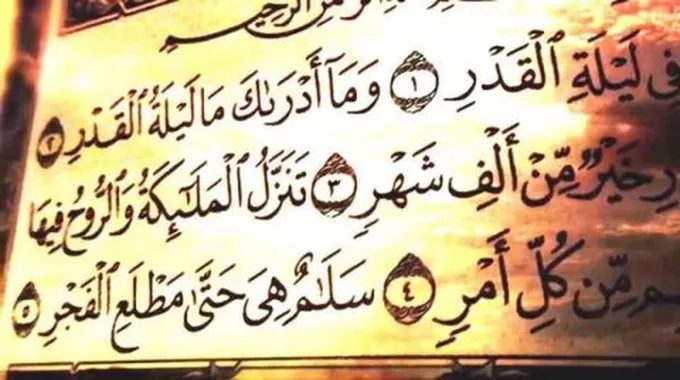 الرَّحِيمِ
فِي لَيْلَةِ ٱلْقَدْرِ ١ وَمَآ أَدْرَىٰكَ مَا لَيْلَةُ ٱلْقَدْرِ ٢
خَيْرٌ مِّنْ أَلْفِ شَهْرٍ ٣ تَنَزَّلُ ٱلْمَلَٰٓئِكَةُ وَٱلرُّوحُ فِيهَا
مِّن كُلِّ أَمْرٍ ٤ سَلَٰمٌ هِيَ حَتَّىٰ مَطْلَعِ ٱلْفَجْرِ ٥